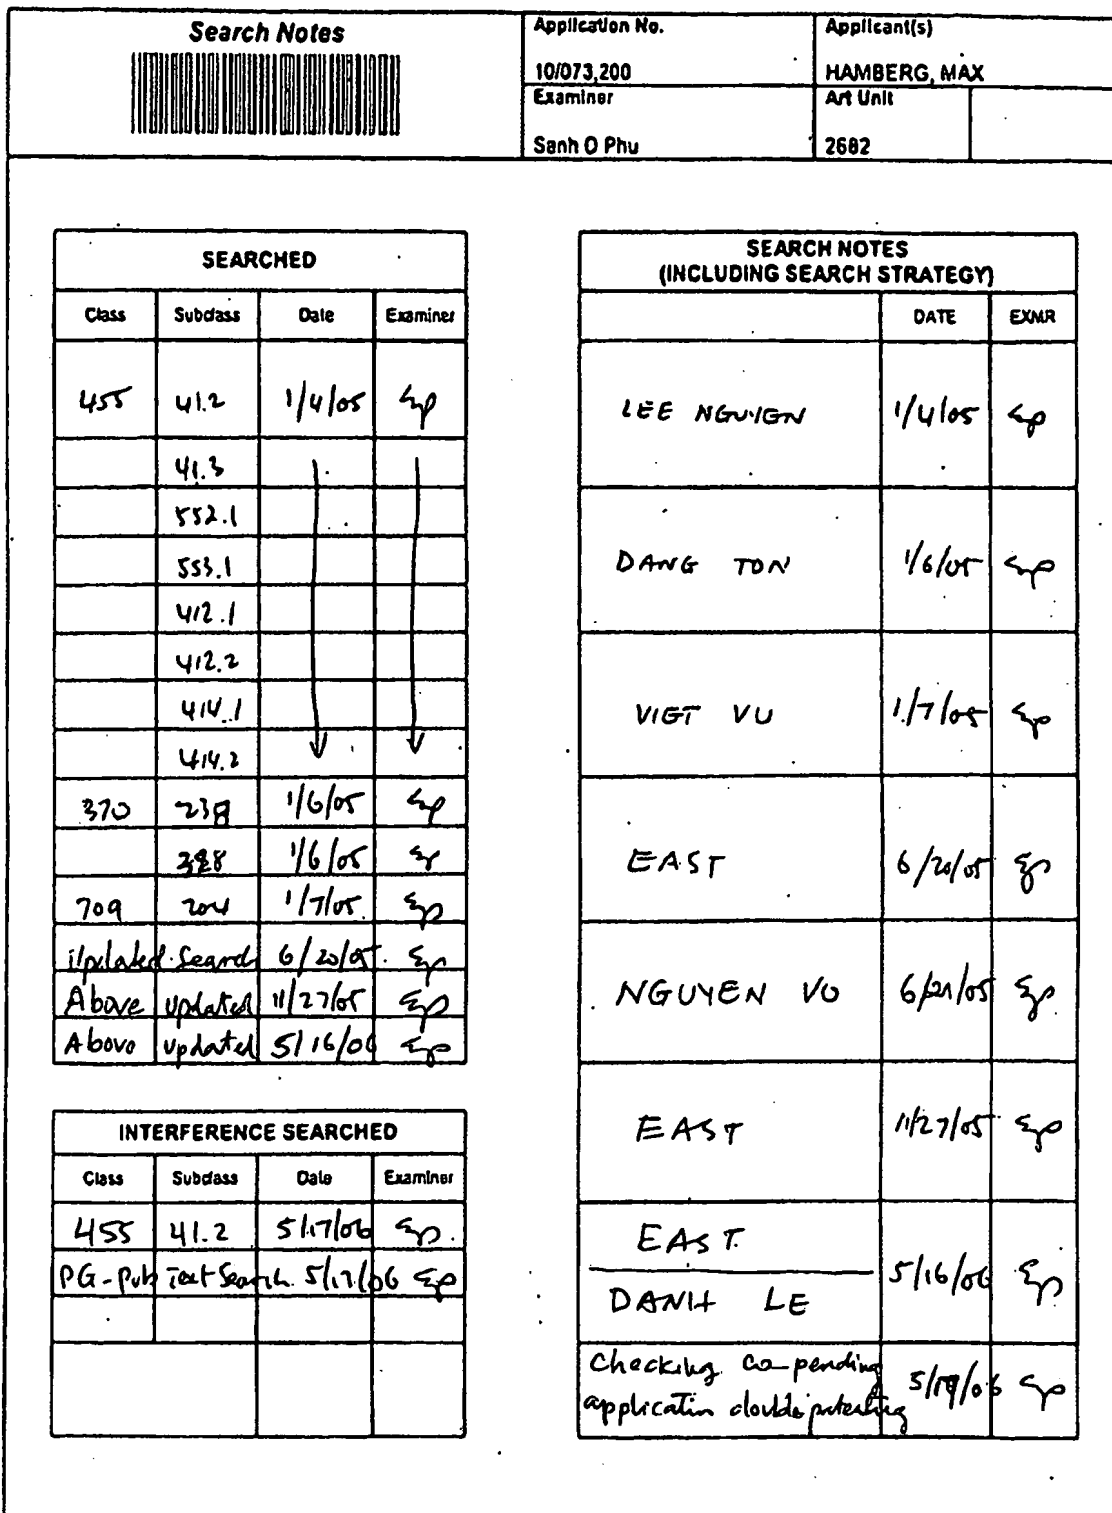 Search Notes
Application No.
Applicant(s)
10/073,200
HAMBERG, MAX
Examiner
Art Unit
Sanh D Phu
2682
SEARCHED
Class Subclass Date Examiner
455 41.2 1/4/05 Sp
41.3
552.1
553.1
412.1
412.2
414.1
414.2
370 238 1/6/05 Sp
1/6/05 Sp
709 204 1/7/05 Sp
Updated Search 6/20/05 Sp
Above updated 11/27/05 Sp
Above updated 5/16/06 Sp
INTERFERENCE SEARCHED
Class Subclass Date Examiner
455 41.2 5/17/06 Sp
PG-Pub Text Search 5/17/06 Sp
SEARCH NOTES
(INCLUDING SEARCH STRATEGY)
DATE EXMR
LEE NGUYEN 1/4/05 Sp
DANG TON 1/6/05 Sp
VIET VU 1/7/05 Sp
EAST 6/20/05 Sp
NGUYEN VO 6/21/05 Sp
EAST 11/27/05 Sp
EAST
DANH LE 5/16/06 Sp
Checking co-pending
application double patenting Sp